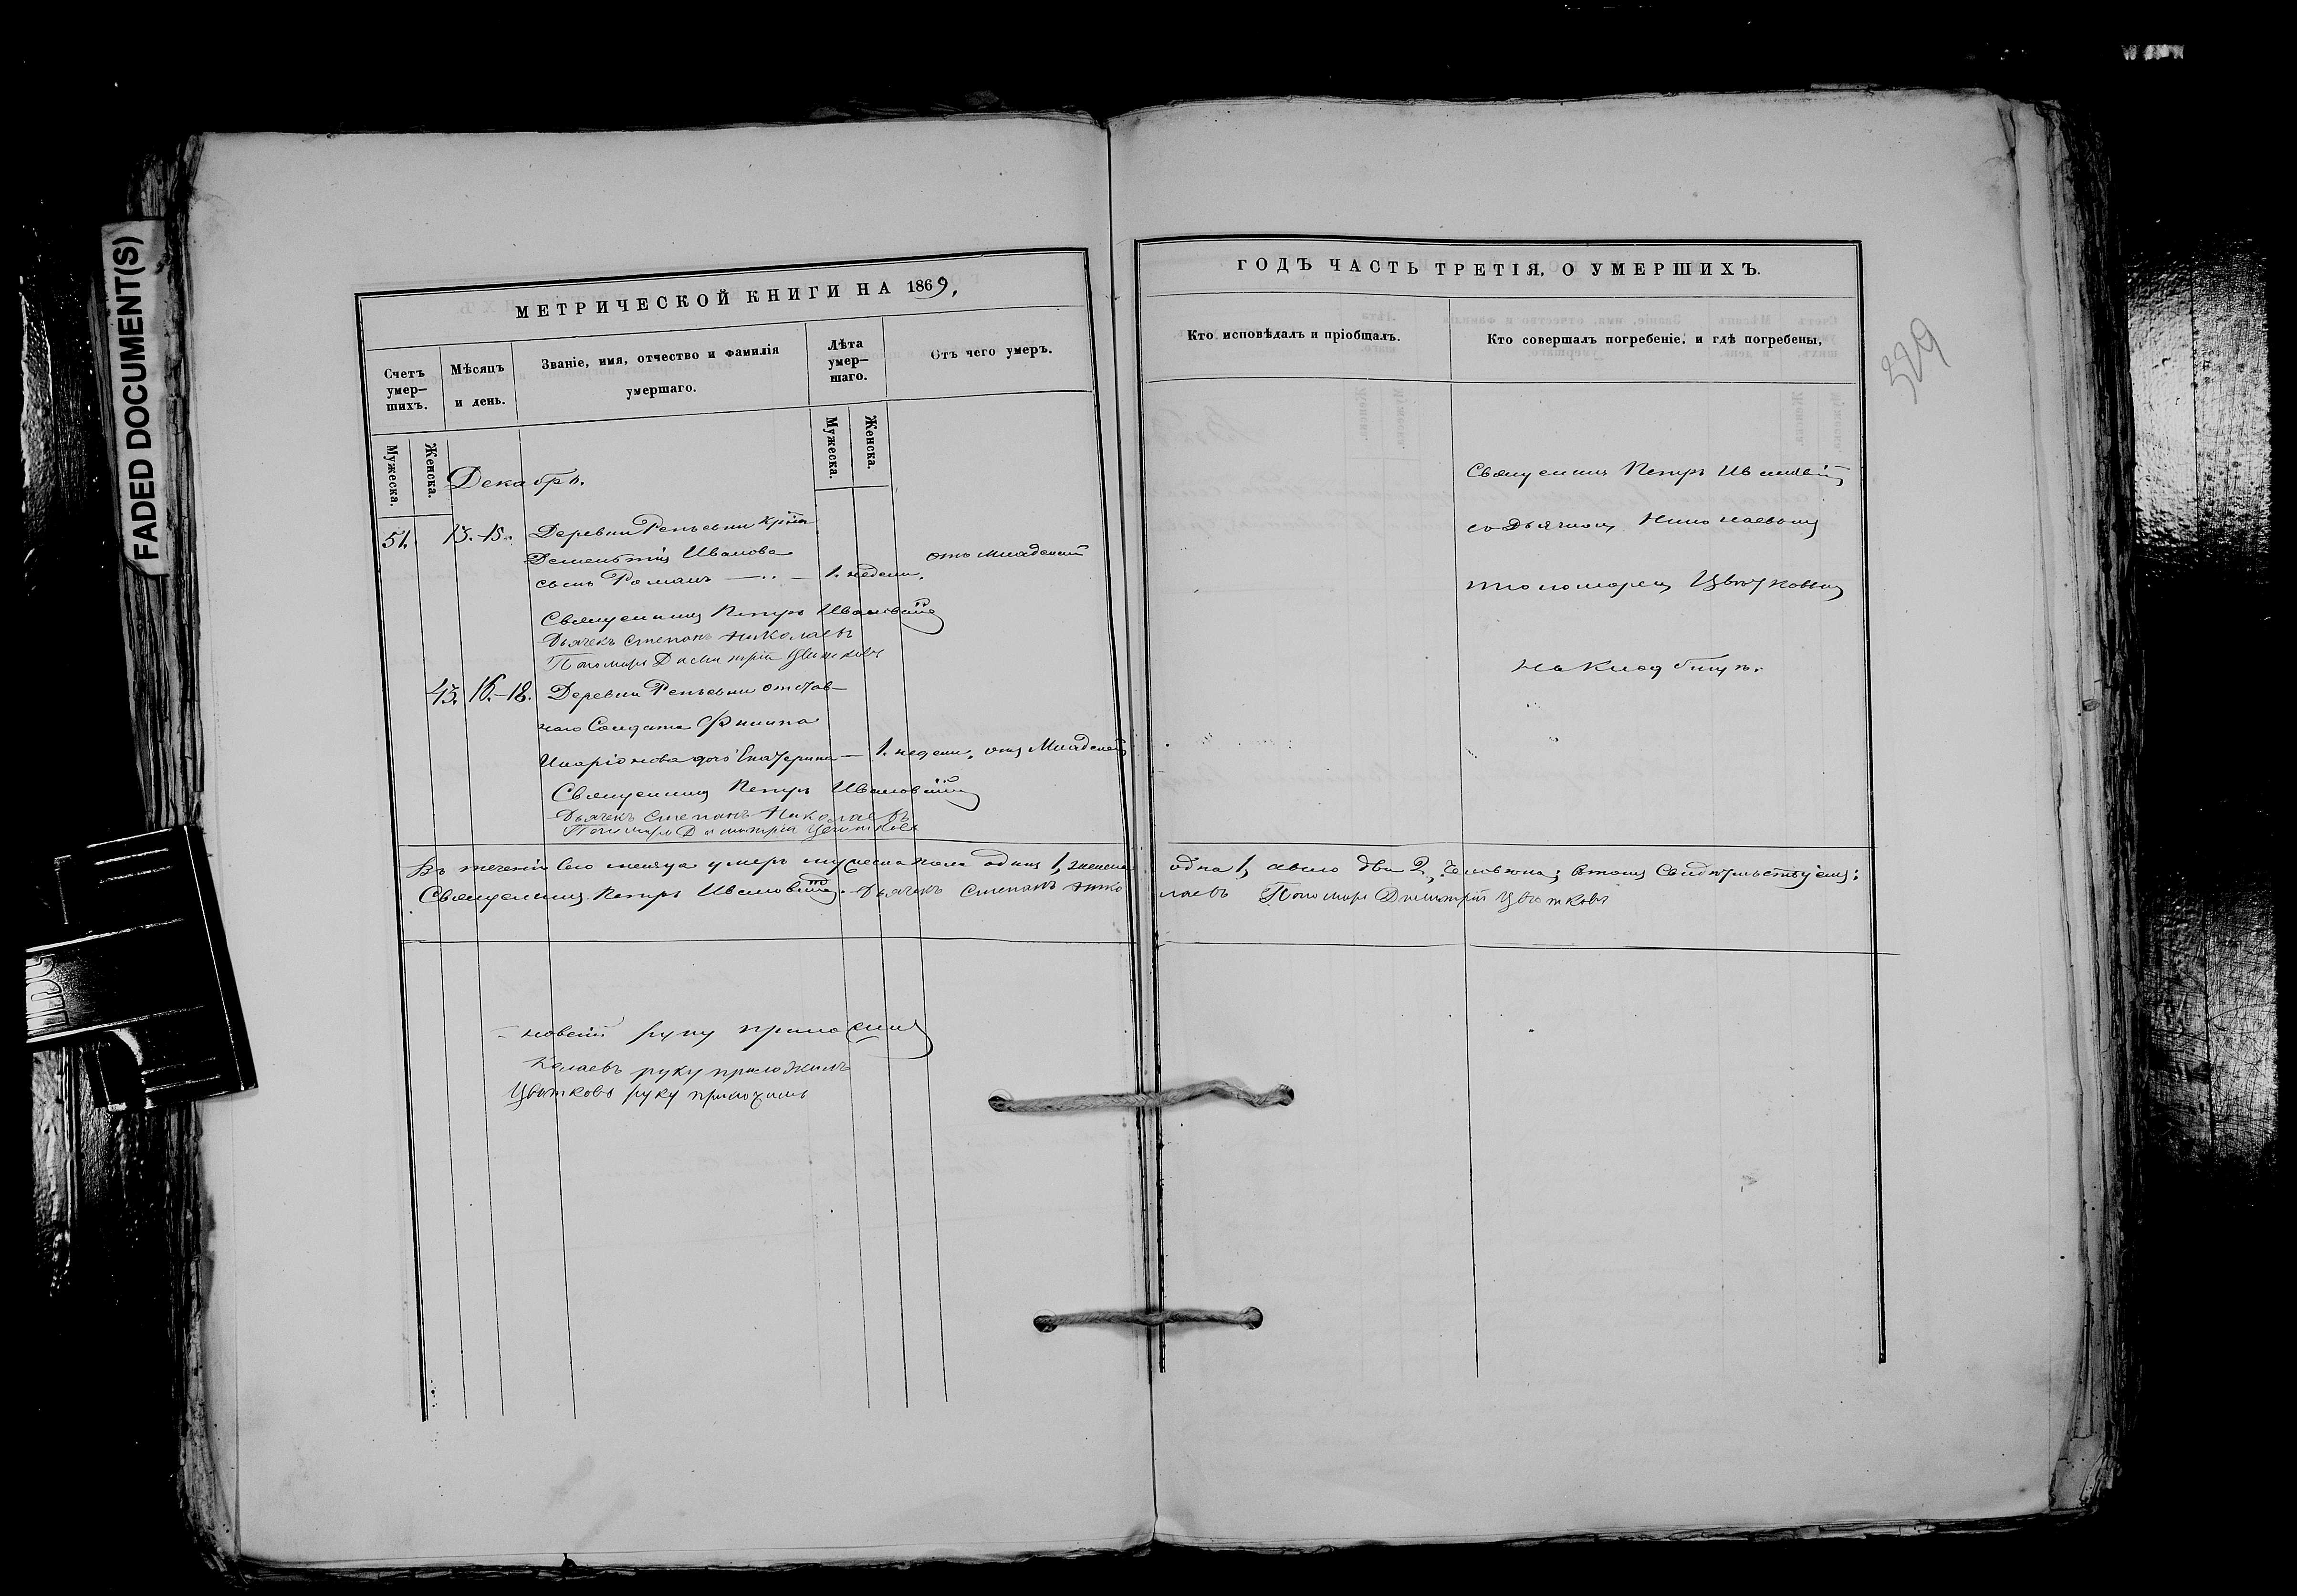 FADED DOCUMENT(S)
МЕТРИЧЕСКОЙ КНИГИ НА 1869,
Счетъ умер-
шихъ.
Мѣсяцъ
и день.
Званіе, имя, отчество и фамилія
умершаго.
Лѣта
умер-
шаго.
Отъ чего умеръ.
Мужеска.
Женска.
Мужеска.
Женска.
Декабрь.
51. 13.-15. Деревни Репьевки
Дементія Иванова
сынъ Романъ — 1. недели. отъ младенч
Священникъ Петръ
Дьячекъ Степанъ Николаевъ
Пономарь Димитрій Цвѣтковъ
43. 16.-18. Деревни Репьевки отстав-
наго Солдата Филипа
Иларіонова дочь Екатерина — 1. недели, отъ Младенч
Священникъ Петръ
Дьячекъ Степанъ Николаевъ
Пономарь Димитрій Цвѣтковъ
Въ теченіи сего месяца умеръ мужеска пола одинъ 1, женска
Священникъ Петръ Дьячекъ Степанъ Нико
новскій руку приложилъ
колаевъ руку приложилъ
Цвѣтковъ руку приложилъ
ГОДЪ ЧАСТЬ ТРЕТІЯ, О УМЕРШИХЪ.
Кто исповѣдалъ и пріобщалъ.
Кто совершалъ погребеніе, и гдѣ погребены,
329
Священникъ Петръ
съ Дьячкомъ Николаевымъ
и пономаремъ Цвѣтковымъ
на кладбищѣ.
одна 1, двѣ 2, человѣка; въ томъ свидѣтельствуемъ:
лаевъ Пономарь Димитрій Цвѣтковъ